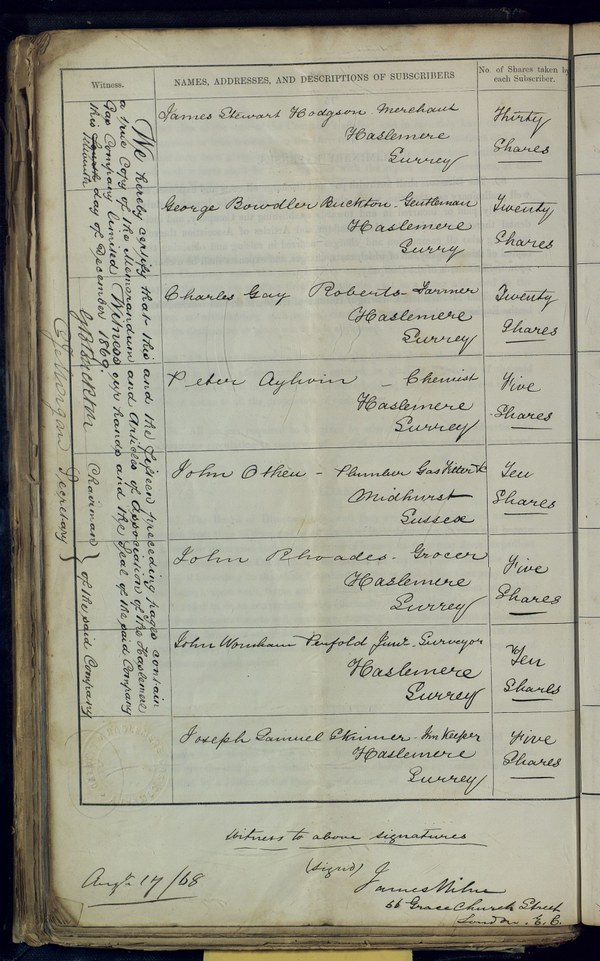 Witness.
NAMES, ADDRESSES, AND DESCRIPTIONS OF SUBSCRIBERS
No. of Shares taken by
each Subscriber.
James Stewart Hodgson Merchant
Haslemere
Surrey
Thirty
Shares
George Bowdler Buckton - Gentleman
Haslemere
Surry
Twenty
Shares
Charles Gay Roberts - Farmer
Haslemere
Surrey
Twenty
Shares
Peter Aylwin - Chemist
Haslemere
Surrey
Five
Shares
John Otheu - Plumber Gas Fitter &c
Midhurst
Sussex
Ten
Shares
John Rhoades - Grocer
Haslemere
Surrey
Five
Shares
John Wornham Penfold Junr. Surveyor
Haslemere
Surrey
Ten
Shares
Joseph Samuel Skinner - Inn Keeper
Haslemere
Surrey
Five
Shares
We hereby certify that this and the fifteen preceding pages contain
a true Copy of the Memorandum and Articles of Association of the Haslemere
Gas Company limited Witness our hands and the Seal of the said Company
this fourth day of December 1869
Eleventh
GB Buckton Chairman
Morgan Secretary
of the said Company
Witness to above signatures
(Signd)
Augt. 17/68
James Milne
56 Grace Church Street
London. E. C.